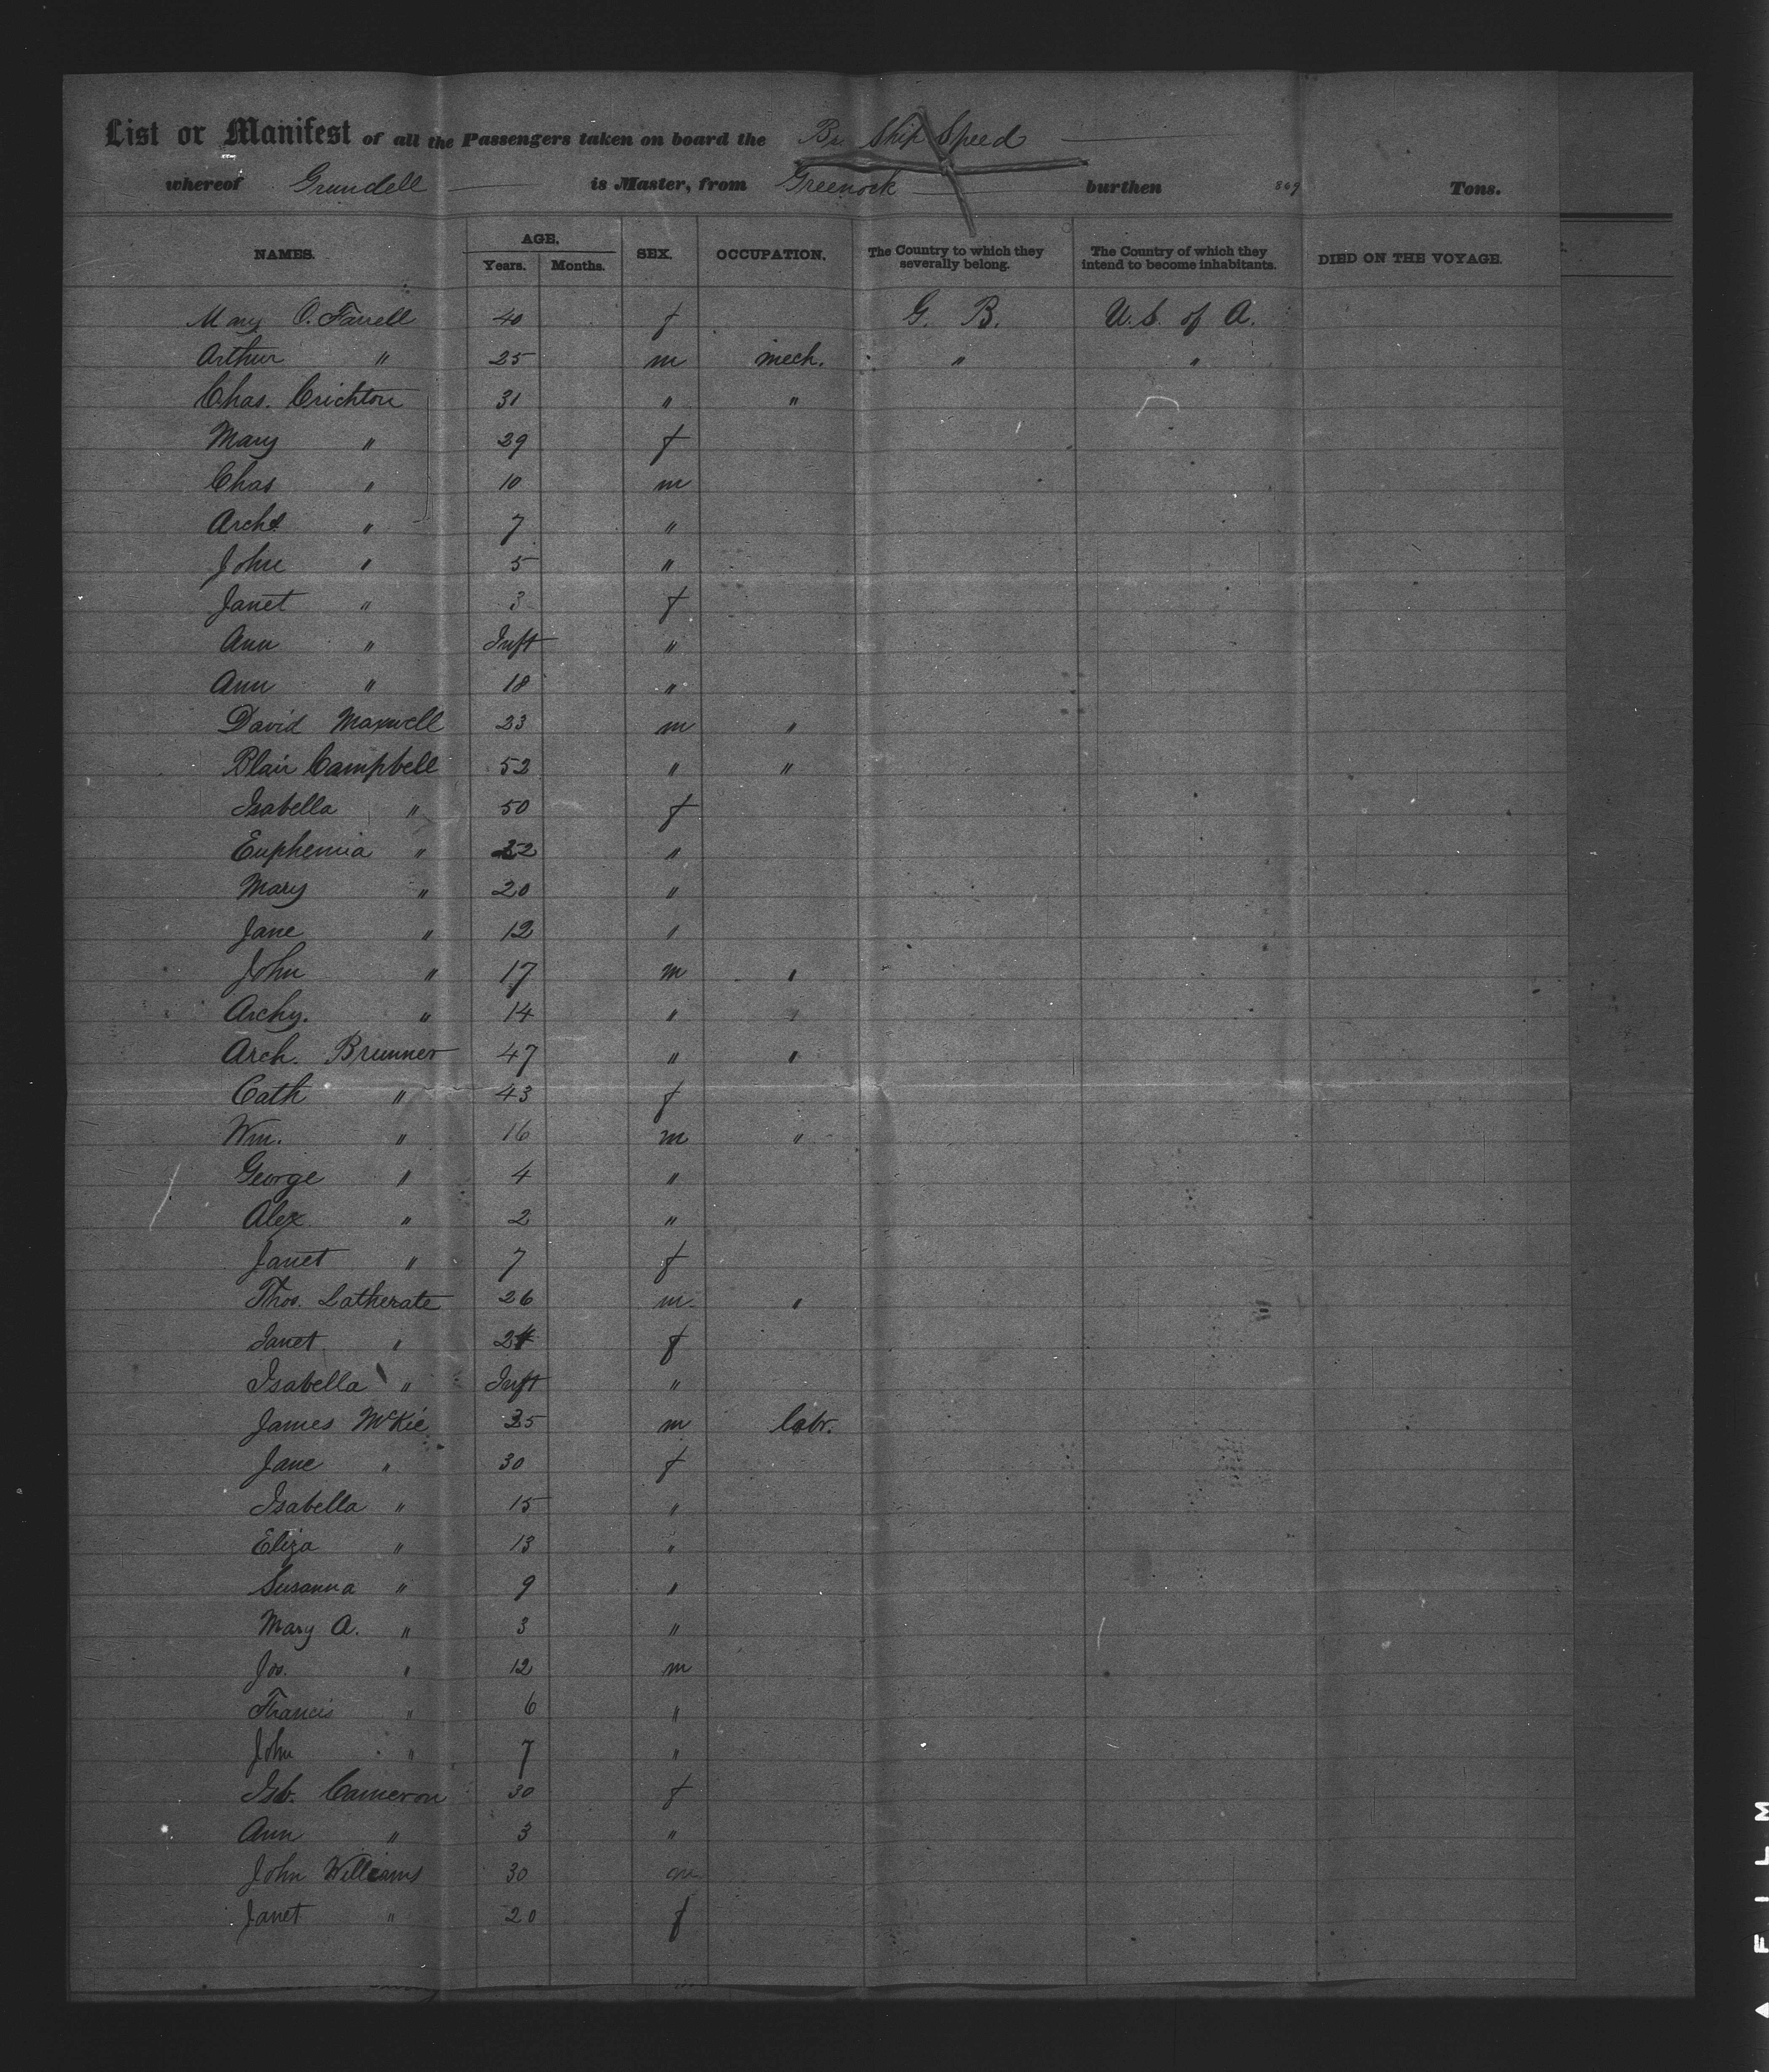 List or Manifest of all the Passengers taken on board the Br Ship Speed
whereof Grundell is Master, from Greenock burthen 869 Tons.
NAMES. AGE. Years. Months. SEX. OCCUPATION. The Country to which they severally belong. The Country of which they intend to become inhabitants. DIED ON THE VOYAGE.
Mary O. Farrell 40 f G. B. U.S. of A.
Arthur " 25 m mech. " "
Chas. Crichton 31 " "
Mary " 29 f
Chas " 10 m
Archd " 7 "
John " 5 "
Janet " 3 f
Ann " Inft "
Ann " 18 "
David Maxwell 23 m "
Blair Campbell 52 " "
Isabella " 50 f
Euphemia " 22 "
Mary " 20 "
Jane " 12 "
John " 17 m "
Archy. " 14 " "
Arch. Brunner 47 " "
Cath " 43 f
Wm. " 16 m "
George " 4 "
Alex " 2 "
Janet " 7 f
Thos. Latherate 26 m "
Janet " 24 f
Isabella " Inft "
James McKie 35 m labr.
Jane " 30 f
Isabella " 15 "
Eliza " 13 "
Susanna " 9 "
Mary A. " 3 "
Jos. " 12 m
Francis " 6 "
John " 7 "
Isb. Cameron 30 f
Ann " 3 "
John Williams 30 m
Janet " 20 f
FILM